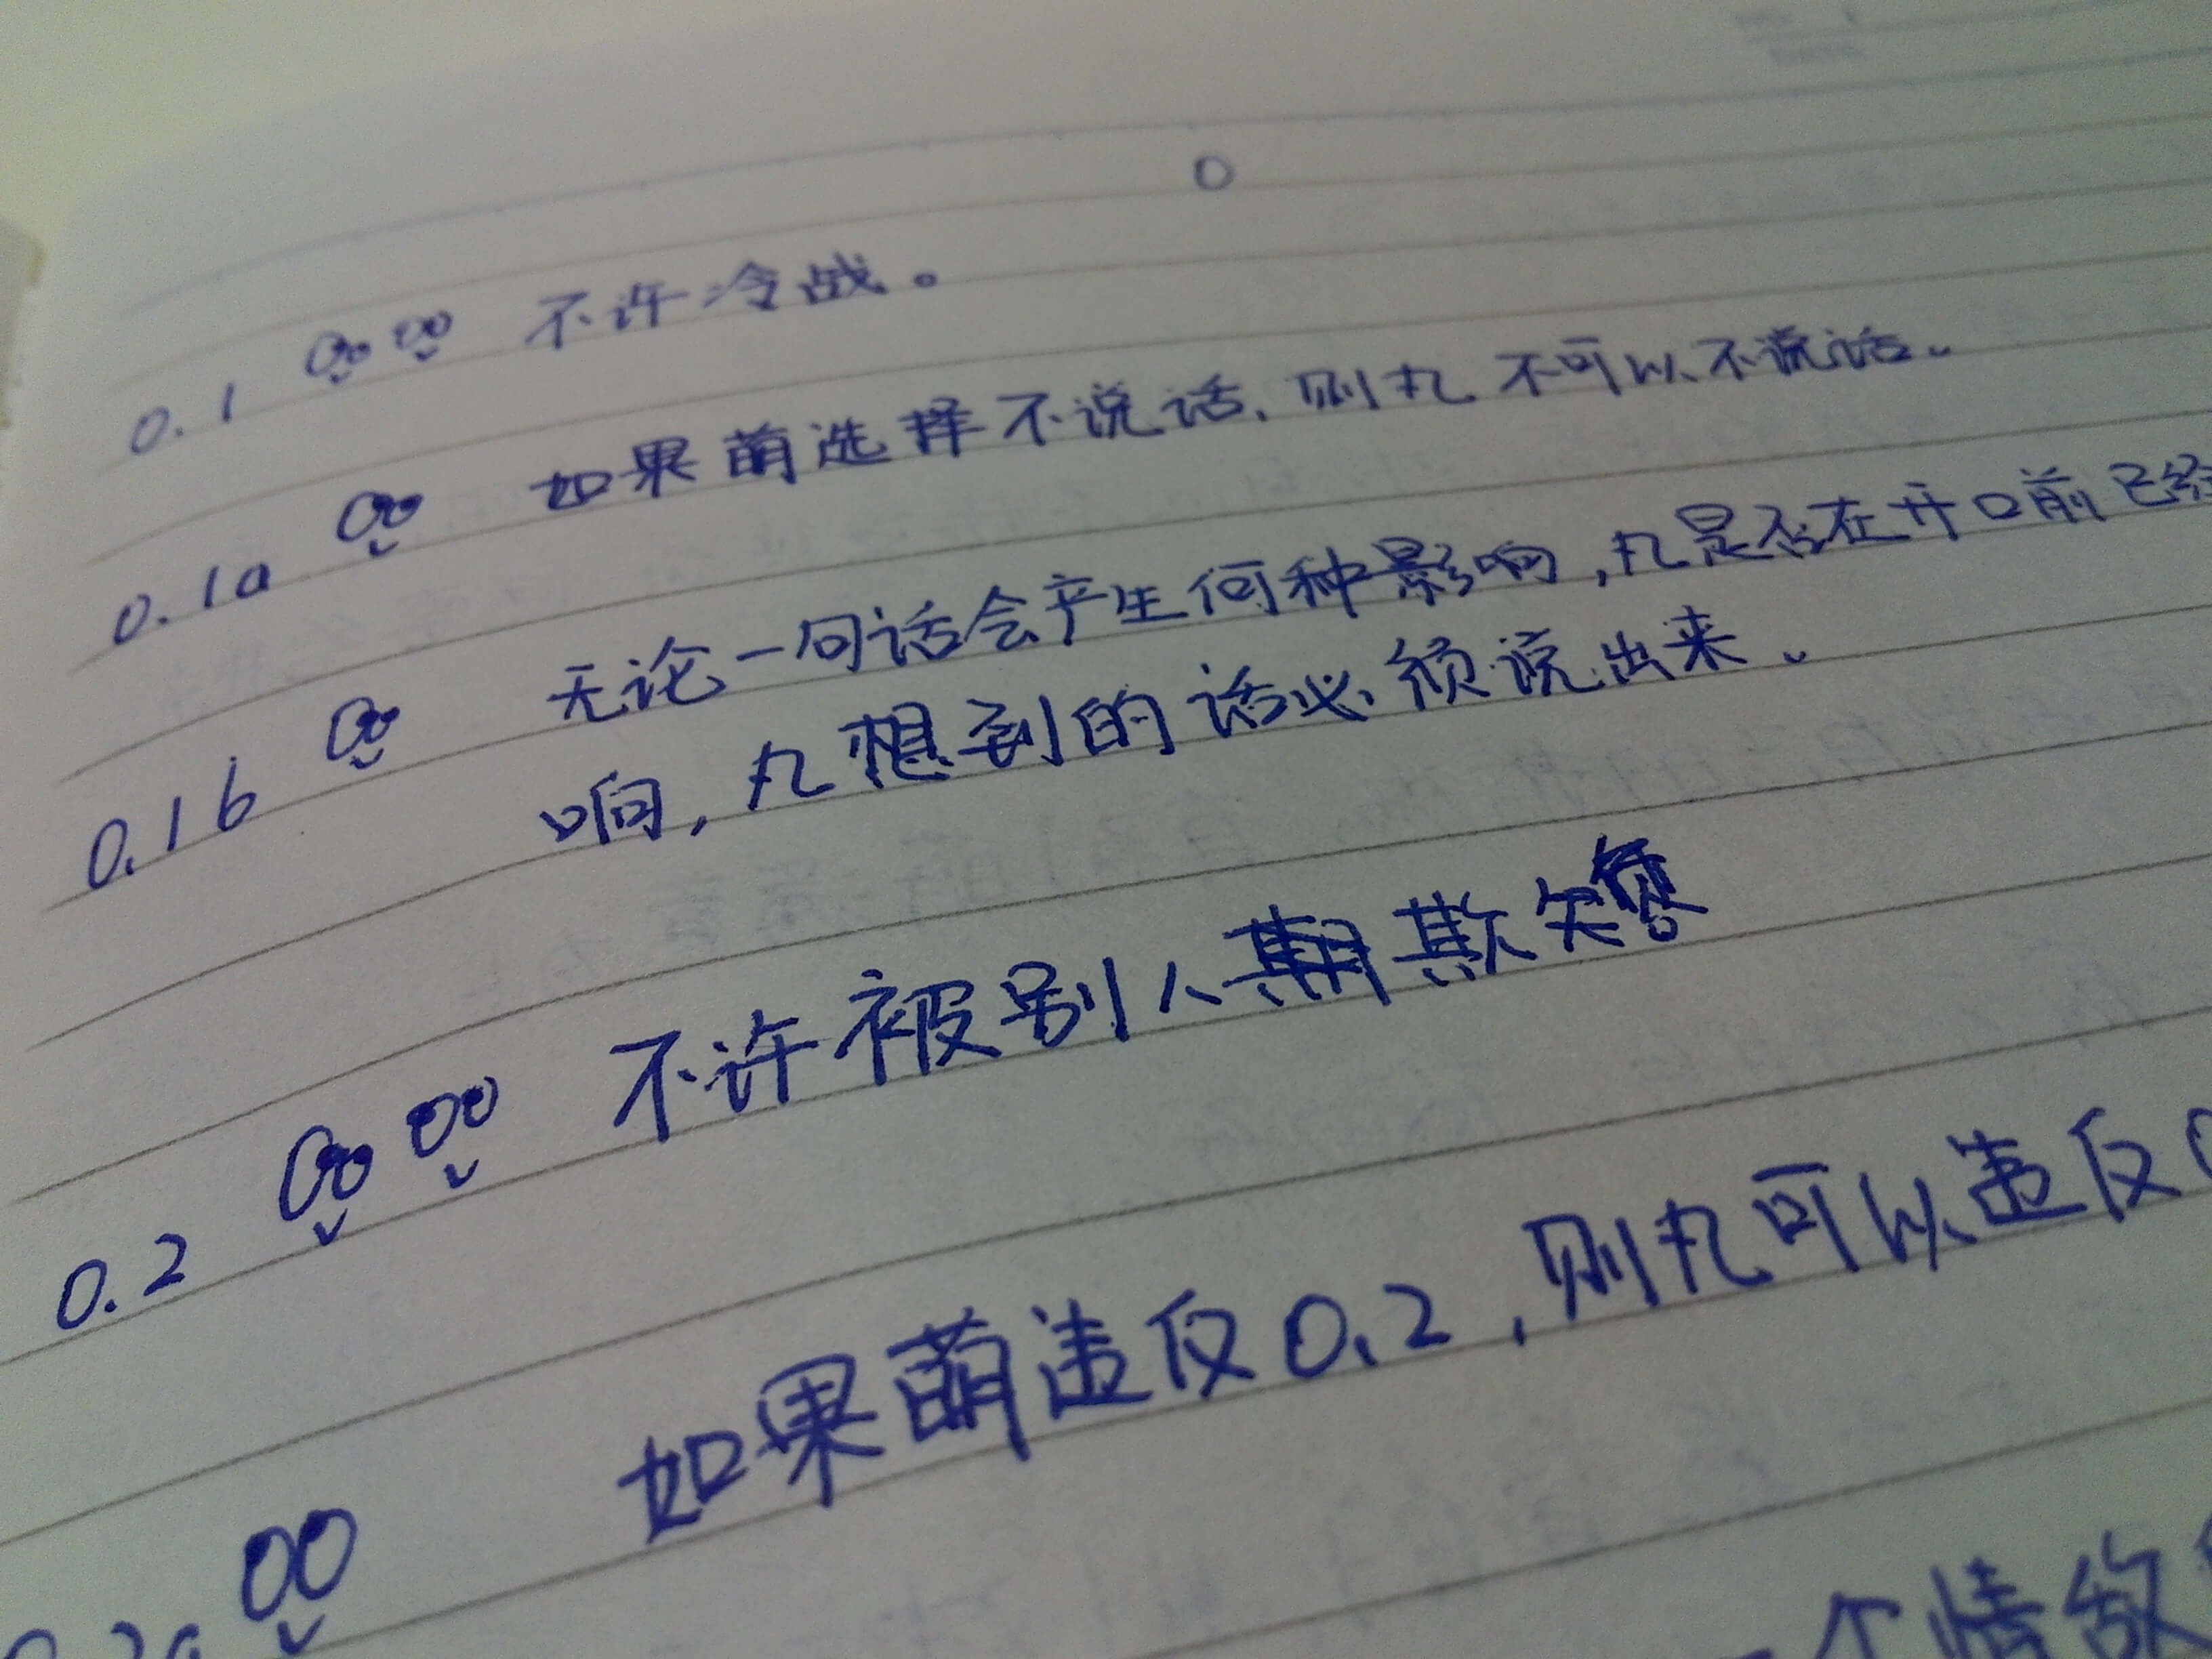 0
0.1 不许冷战。
0.1a 如果萌选择不说话，则丸不可以不说话。
0.1b 无论一句话会产生何种影响，丸是否在开口前已经
响，丸想到的话必须说出来。
0.2 不许被别人欺负
如果萌违反0.2，则丸可以违反0
0.2a
一个情敌